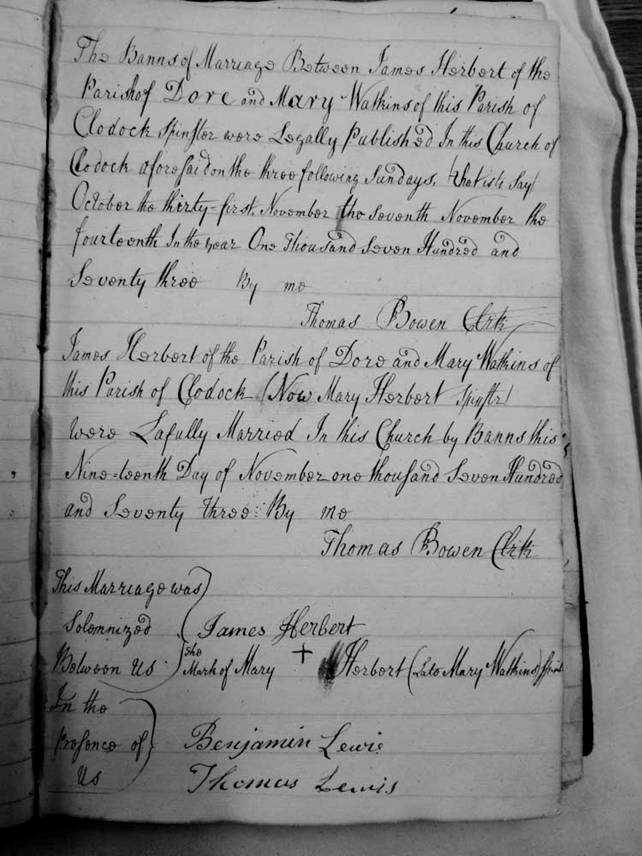 The Banns of Marriage Between James Herbert of the
Parish of Dore and Mary Watkins of this Parish of
Clodock Spinster were Legally Published In this Church of
Clodock aforesaid on the three following Sundays, (that is to Say)
October the thirty-first, November the Seventh November the
fourteenth In the year One Thousand Seven Hundred and
Seventy three By me
Thomas Bowen Clrk
James Herbert of the Parish of Dore and Mary Watkins of
this Parish of Clodock (Now Mary Herbert Spinstr)
were Lafully Married In this Church by Banns this
Nine-teenth Day of November one thousand Seven Hundred
and Seventy three By me
Thomas Bowen Clrk
This Marriage was
Solemnized James Herbert
Between Us The Mark of Mary + Herbert (Late Mary Watkins)
In the
Presence of Benjamin Lewis
Us Thomas Lewis